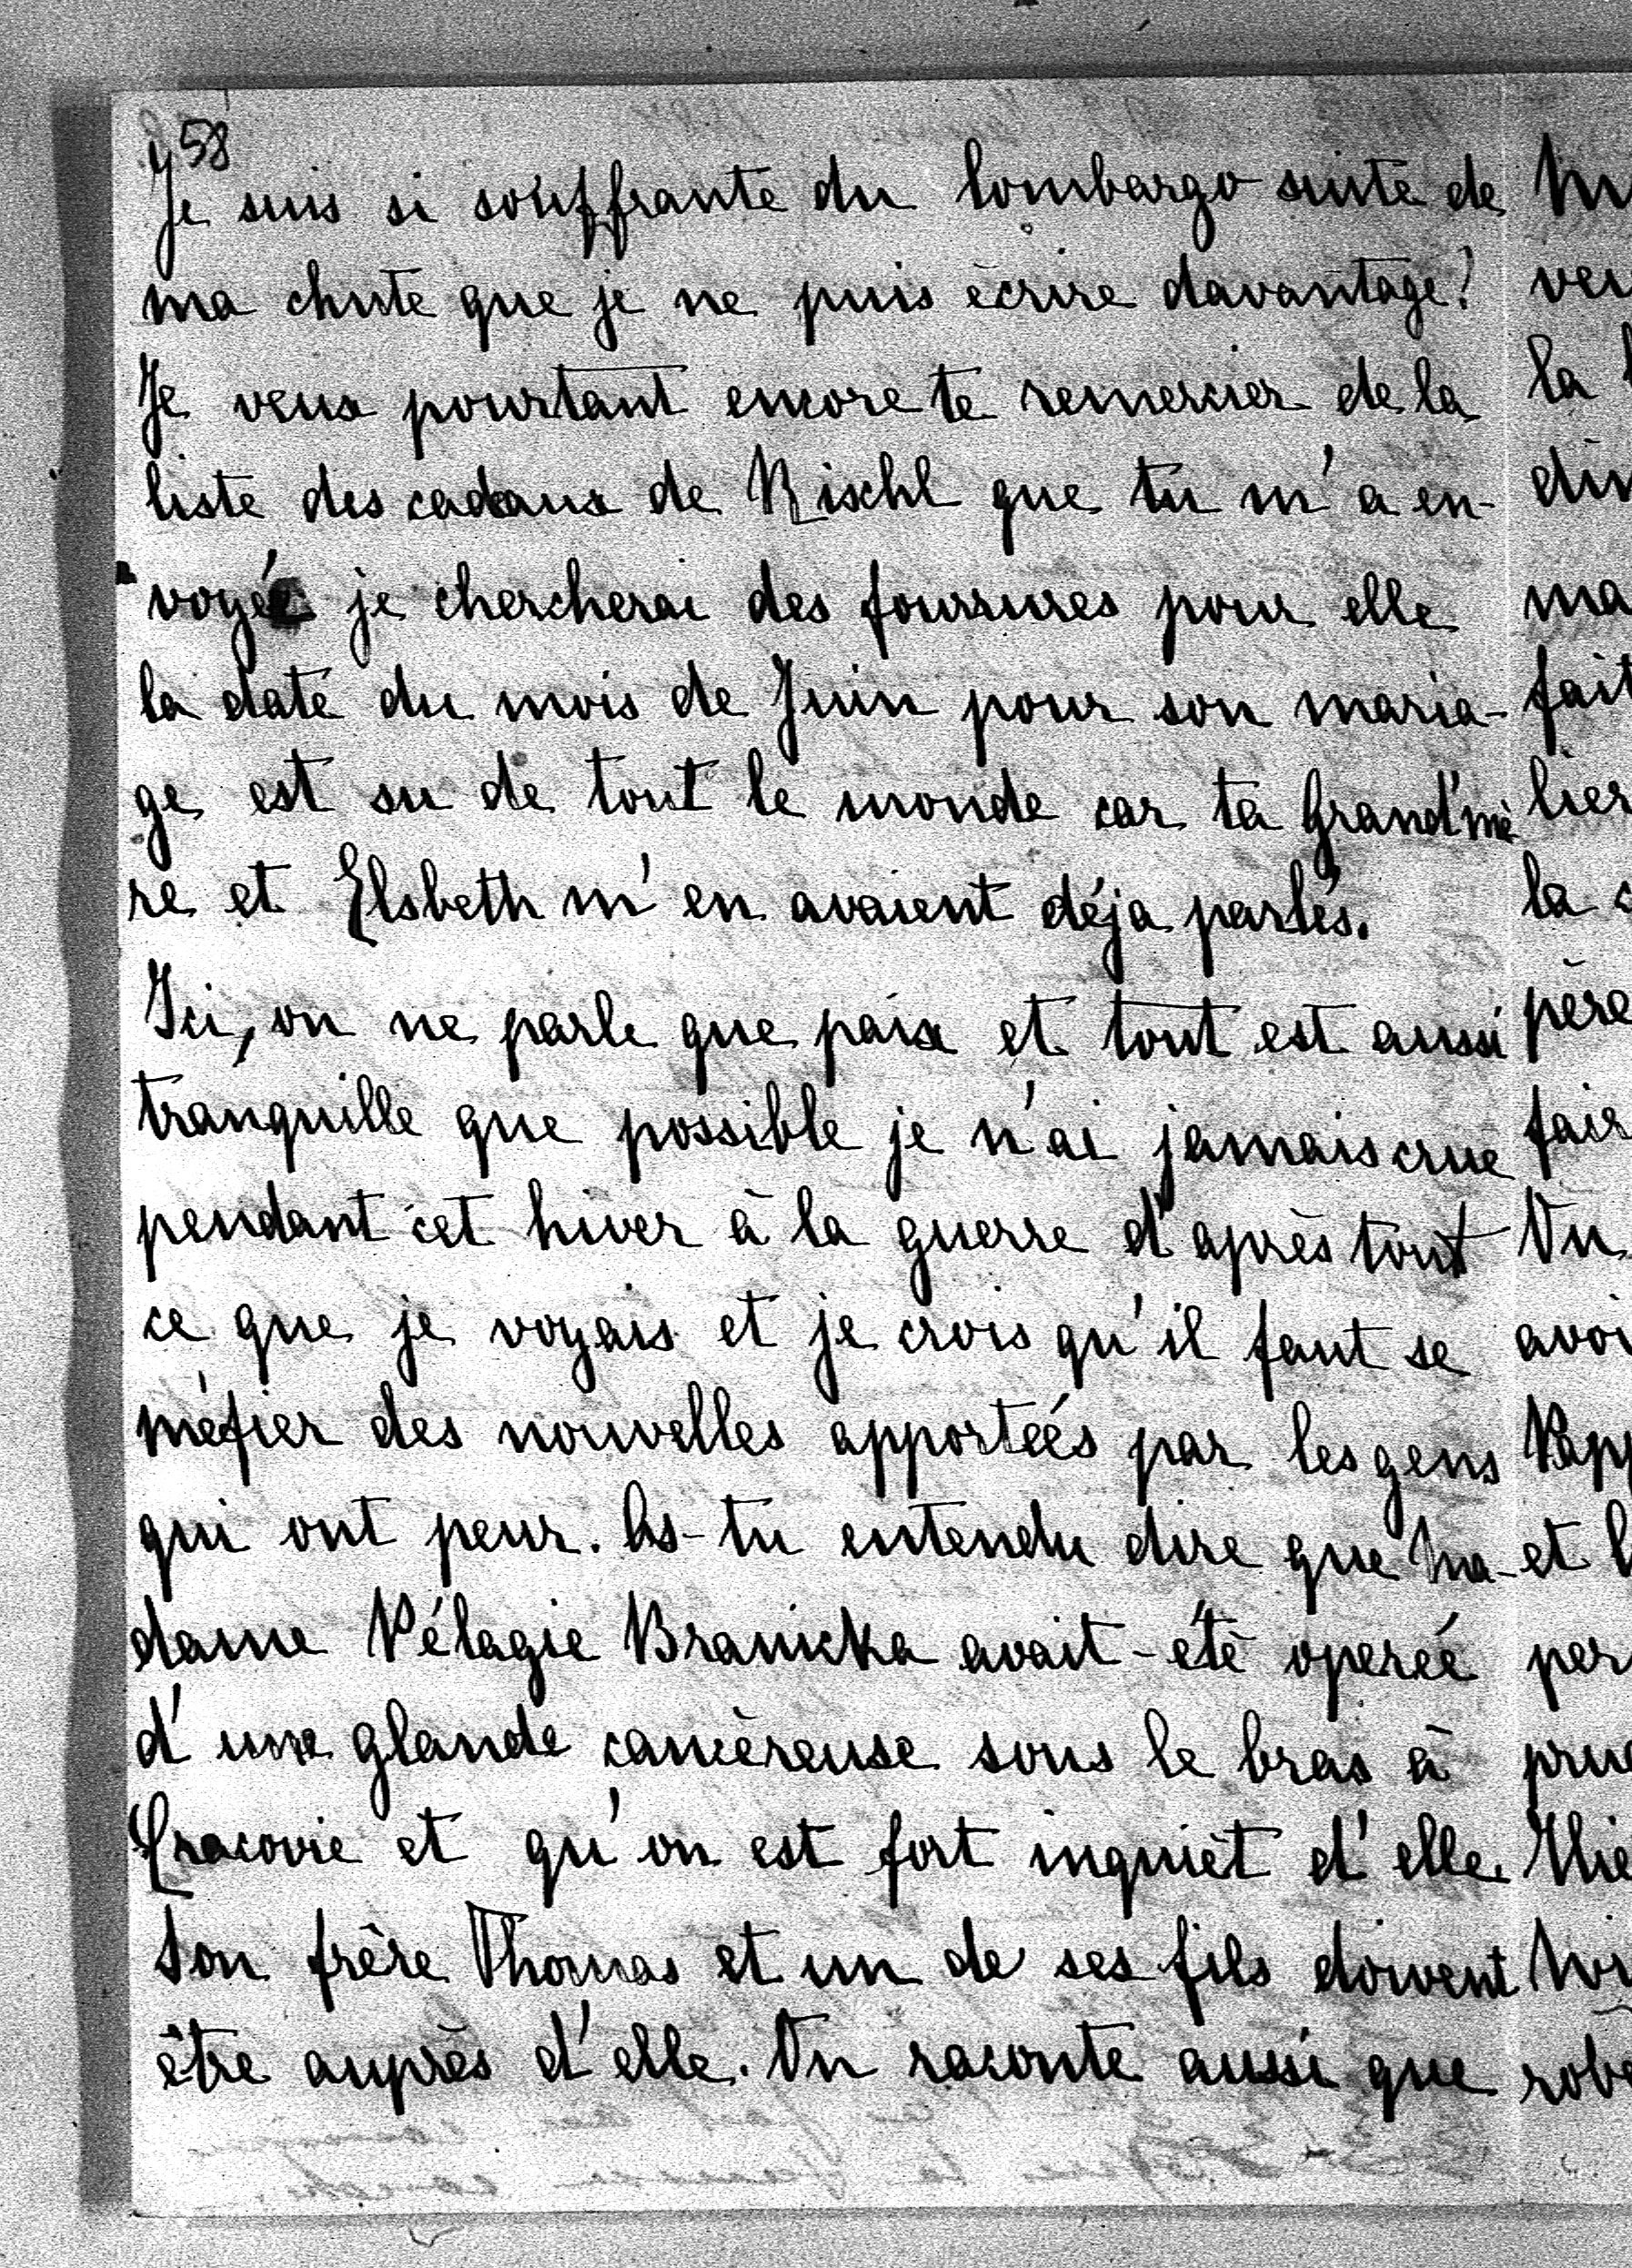 58
Je suis si souffrante du lombargo suite de
ma chute que je ne puis ècrire davantage!
Je veux pourtant encore te remercier de la
liste des cadeaux de Rischl que tu m'a en-
voyé je chercherai des fourrures pour elle
la daté du mois de Juin pour son maria-
ge est su de tout le monde car ta Grand'mè
re et Elsbeth m'en avaient déja parlés.
Ici, on ne parle que paix et tout est aussi
tranquille que possible je n'ai jamais crue
pendant cet hiver à la guerre d'après tout
ce que je voyais et je crois qu'il faut se
méfier des nouvelles apporteés par les gens
qui ont peur. As-tu entendu dire que Ma-
dame Pélagie Branicka avait-étè opereé
d'une glande cancèreuse sous le bras à
Cracovie et qu'on est fort inquièt d'elle.
Son frère Thomas et un de ses fils doivent
être auprès d'elle. On raconte aussi que
la
ma
fait
la
père
On
et